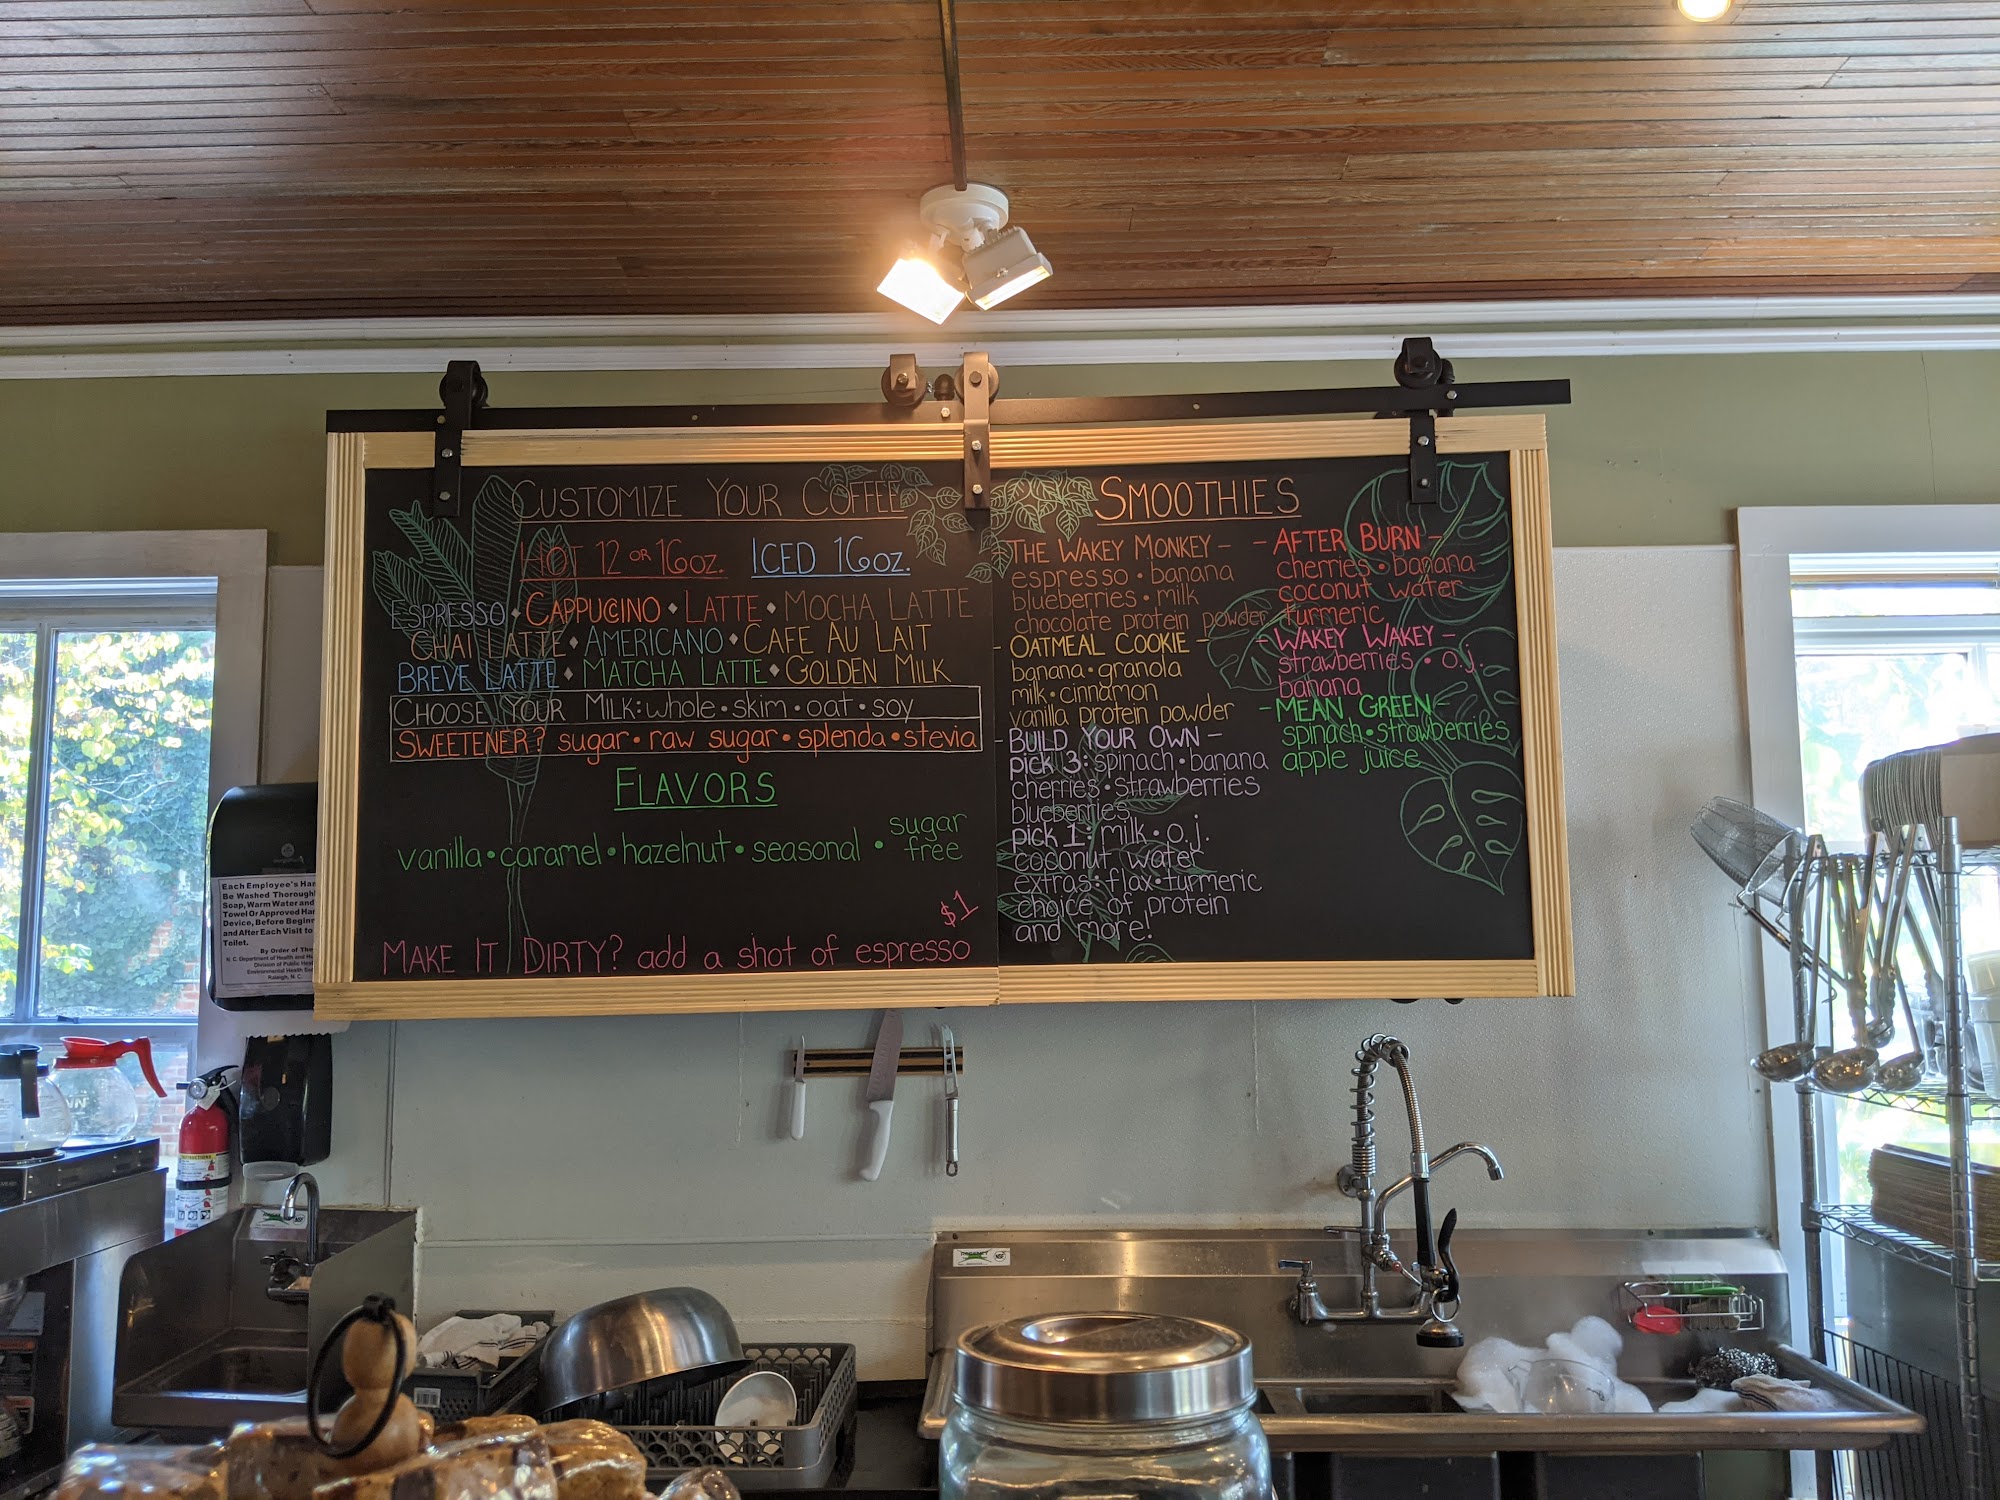 CUSTOMIZE YOUR COFFEE
HOT 12 OR 16oz. ICED 16oz.
ESPRESSO • CAPPUCCINO • LATTE • MOCHA LATTE
CHAI LATTE • AMERICANO • CAFE AU LAIT
BREVE LATTE • MATCHA LATTE • GOLDEN MILK
CHOOSE YOUR MILK: whole • skim • oat • soy
SWEETENER? sugar • raw sugar • splenda • stevia
FLAVORS
vanilla • caramel • hazelnut • seasonal • sugar free
$1
MAKE IT DIRTY? add a shot of espresso
SMOOTHIES
THE WAKEY MONKEY -
espresso • banana
blueberries • milk
chocolate protein powder
- OATMEAL COOKIE -
banana • granola
milk • cinnamon
vanilla protein powder
- BUILD YOUR OWN -
pick 3: spinach • banana
cherries • strawberries
blueberries
pick 1: milk • o.j.
coconut water
extras: flax • turmeric
choice of protein
and more!
- AFTER BURN -
cherries • banana
coconut water
turmeric
- WAKEY WAKEY -
strawberries • o.j.
banana
- MEAN GREEN -
spinach • strawberries
apple juice
Each Employee's
Be Washed
Soap, Warm Water and
Towel Or Approved
Device, Before
and After Each Visit to
Toilet.
By Order of The
N. C. Department of Health and
Division of Public
Environmental Health
Raleigh, N. C.